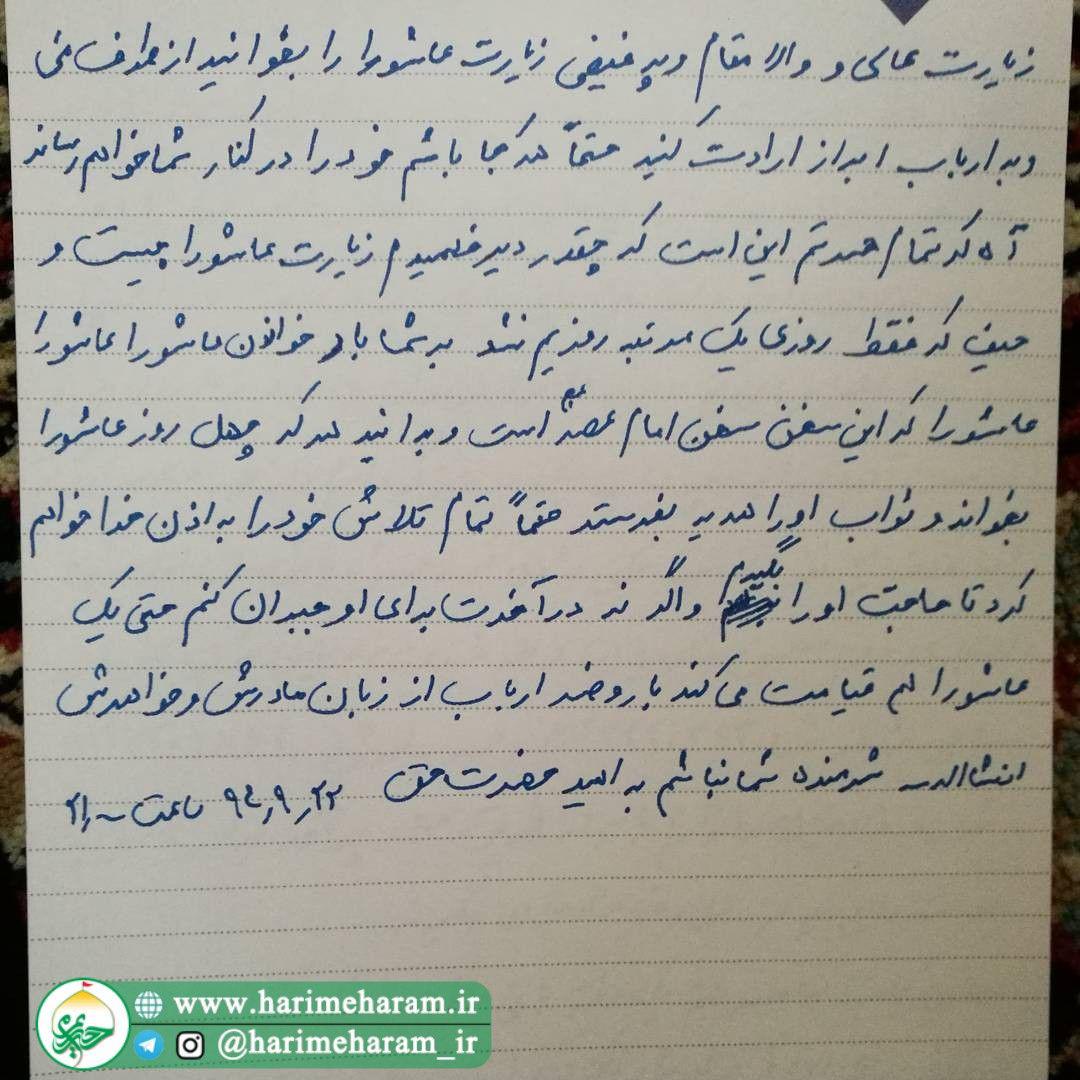 زیارت عالی و والا مقام و پر فیض زیارت عاشورا را بخوانید از طرف من
و به ارباب ابراز ارادت کنید حتماً هر کجا باشم خود را در کنار شما خواهم رساند
آه که تمام حسرتم این است که چقدر دیر فهمیدم زیارت عاشورا چیست و
حیف که فقط روزی یک مرتبه روزیم شد بر شما باد خواندن عاشورا عاشورا
عاشورا که این سخن سخن امام عصر عج است و بدانید هر که چهل روز عاشورا
بخواند و ثواب او را هدیه بفرستد حتماً تمام تلاش خود را به اذن خدا خواهم
کرد تا حاجت او را بگیرم و اگر نه در آخرت برای او جبران کنم حتی یک
عاشورا هم قیامت می کند با روضه ارباب از زبان مادرش و خواهرش
انشاالله شرمنده شما نباشم به امید حضرت حق ۹۴٫۹٫۲۲ ساعت
www.harimeharam.ir
@harimeharam_ir